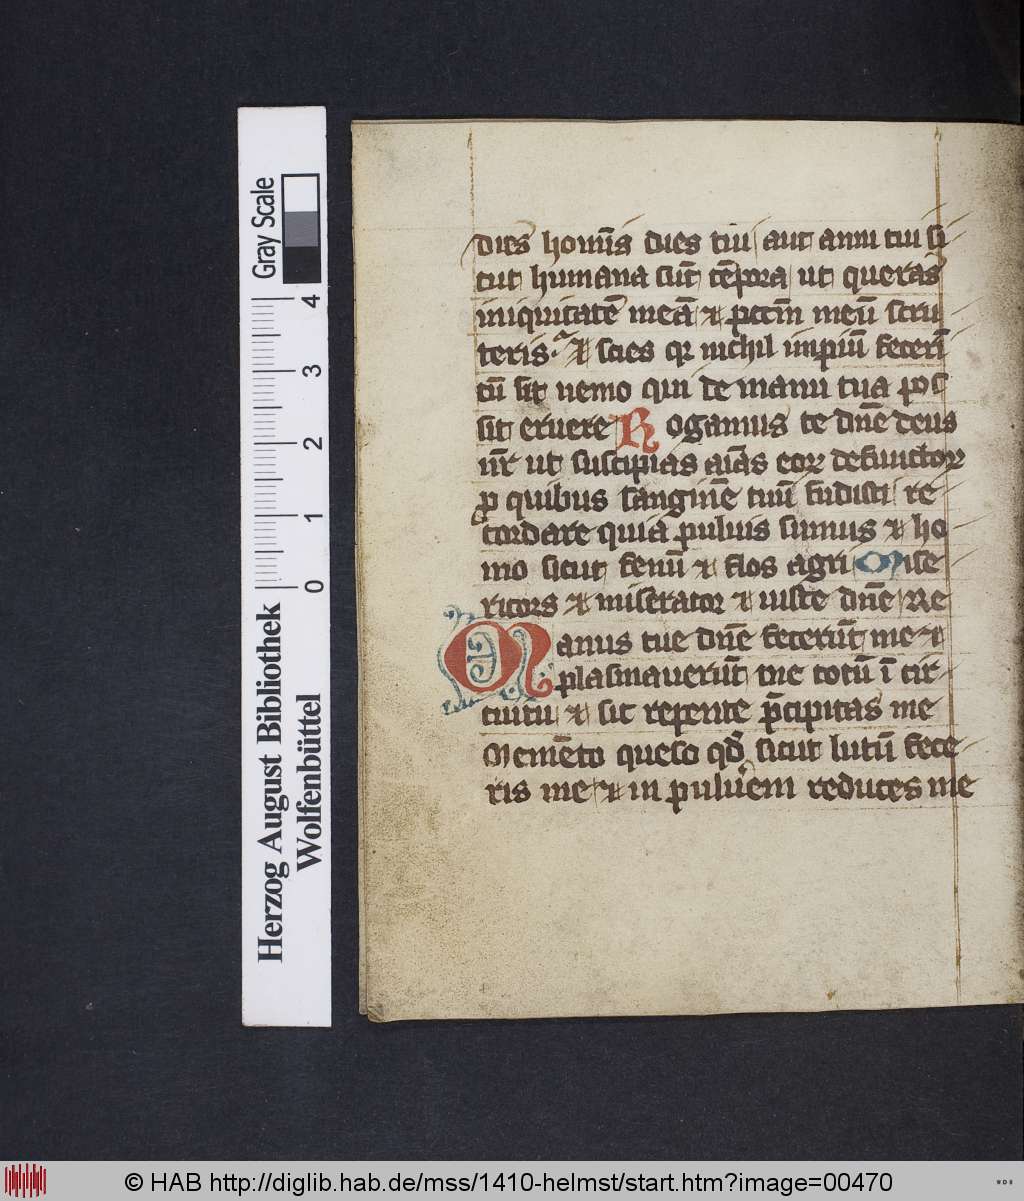 dies homīs dies tui aut anni tui si
cut humana sūt tēpora ut queras
iniquitatē meā ⁊ pctm̄ meū scru
teris. ⁊ scies qꝛ nichil impiū fecerī
cū sit nemo qui de manu tua pos
sit eruere Rogamus te dn̄e deus
nr̄ ut suscipias aīas eoꝝ defunctoꝝ
ꝓ quibus sanguinē tuū fudisti re
cordare quia puluis sumus ⁊ ho
mo sicut fenū ⁊ flos agri Mise
ricors ⁊ miserator ⁊ iuste dn̄e Re
Manus tue dn̄e fecerūt me ⁊
plasmauerūt me totū ī cir
cuitu ⁊ sic repente p̄cipitas me
Memēto queso qd̄ sicut lutū fece
ris me ⁊ in puluerem reduces me
Gray Scale
4
3
2
1
0
Herzog August Bibliothek
Wolfenbüttel
© HAB http://diglib.hab.de/mss/1410-helmst/start.htm?image=00470